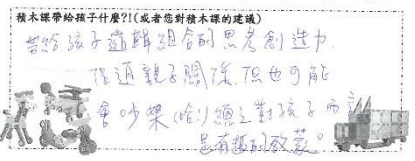 積木課帶給孩子什麼?!(或者您對積木課的建議)
帶給孩子邏輯組合的思考創造力
促進親子關係,但也可能
會吵架(哈!)總之對孩子而言
是有趣的啟蒙。